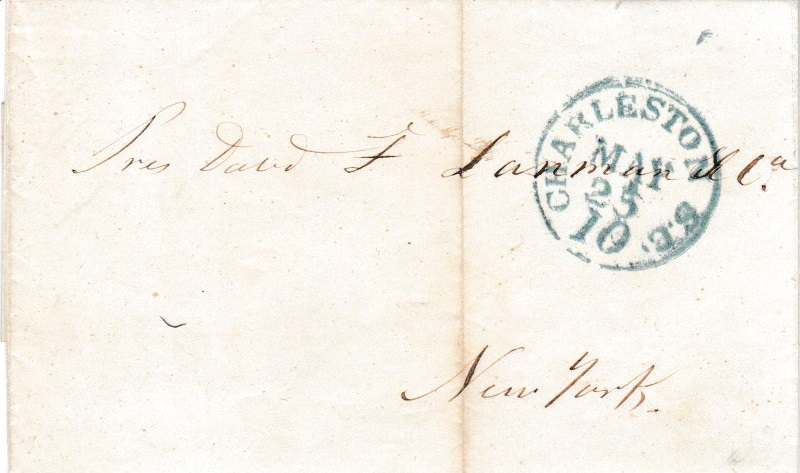 Sres David F Lanman & Ca.
New York.
CHARLESTON S.C.
MAY
25
10